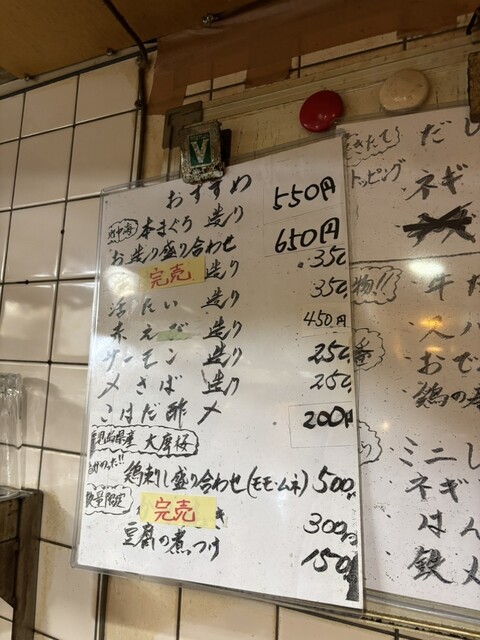 おすすめ
地中海 本まぐろ 造り 550円
お造り盛り合わせ 650円
完売 造り 350
活たい 造り 350
赤えび 造り 450円
サーモン 造り 250
〆さば 造り 250
こはだ酢〆 200円
鹿児島県産 大摩桜
鶏刺し盛り合わせ(モモ・ムネ) 500
数量限定 完売 300
豆腐の煮つけ 150
トッピング
だし
ネギ
物!!
牛
おで
鶏の
ミニ
ネギ
はん
鉄